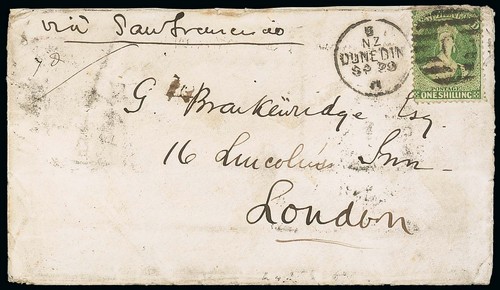 via San Francisco
NZ
DUNEDIN
SP 29
POSTAGE
ONE SHILLING
G. Brakenridge Esq
16 Lincoln's Inn
London